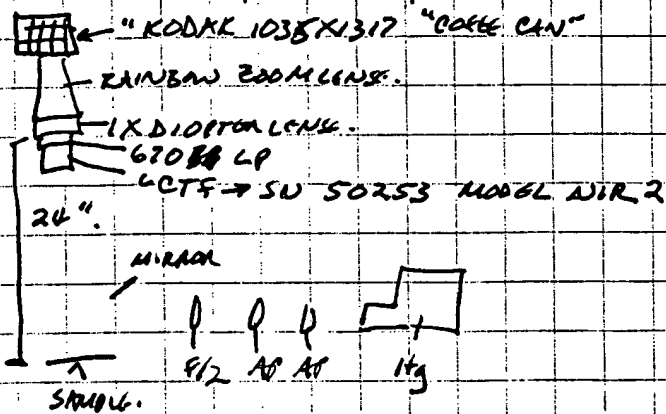 "KODAK 1035X1317 "COFFE CAN"
RAINBOW ZOOM LENSE.
1X DIOPTOR LENSE.
670 LP
LCTF → SN 50253 MODEL NIR 2
24".
MIRROR
F/2 AP AP Hg
SAMPLE.